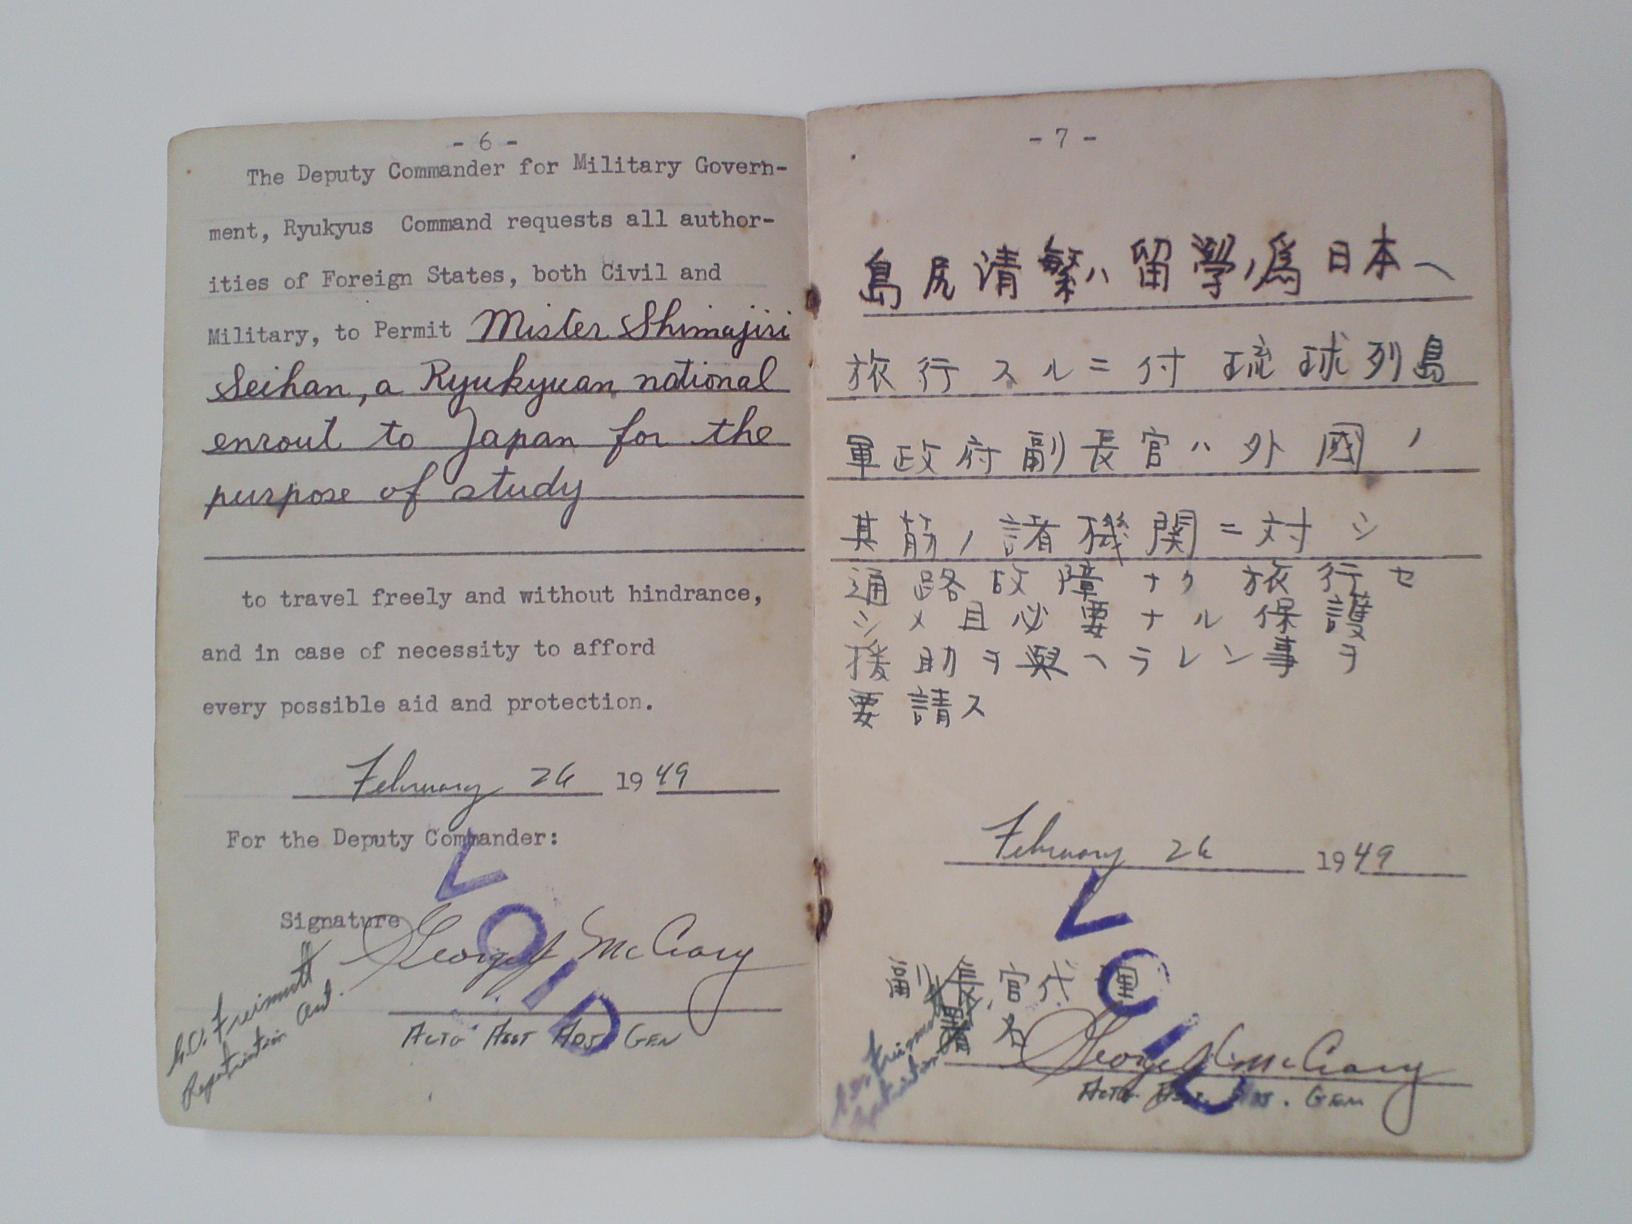 - 6 -
The Deputy Commander for Military Govern-
ment, Ryukyus Command requests all author-
ities of Foreign States, both Civil and
Military, to Permit Mister Shimajiri
Seihan, a Ryukyuan national
enrout to Japan for the
purpose of study
to travel freely and without hindrance,
and in case of necessity to afford
every possible aid and protection.
February 26 1949
For the Deputy Commander:
Signatyre George McCrary
Asst Adj Gen
VOID
- 7 -
島尻清繁ハ留學ノ爲日本ヘ
旅行スルニ付琉球列島
軍政府副長官ハ外國ノ
其筋ノ諸機関ニ対シ
通路故障ナク旅行セ
シメ且必要ナル保護
援助ヲ與ヘラレン事ヲ
要請ス
February 26 1949
副長官代理
署名
Asst. Gen
VOID